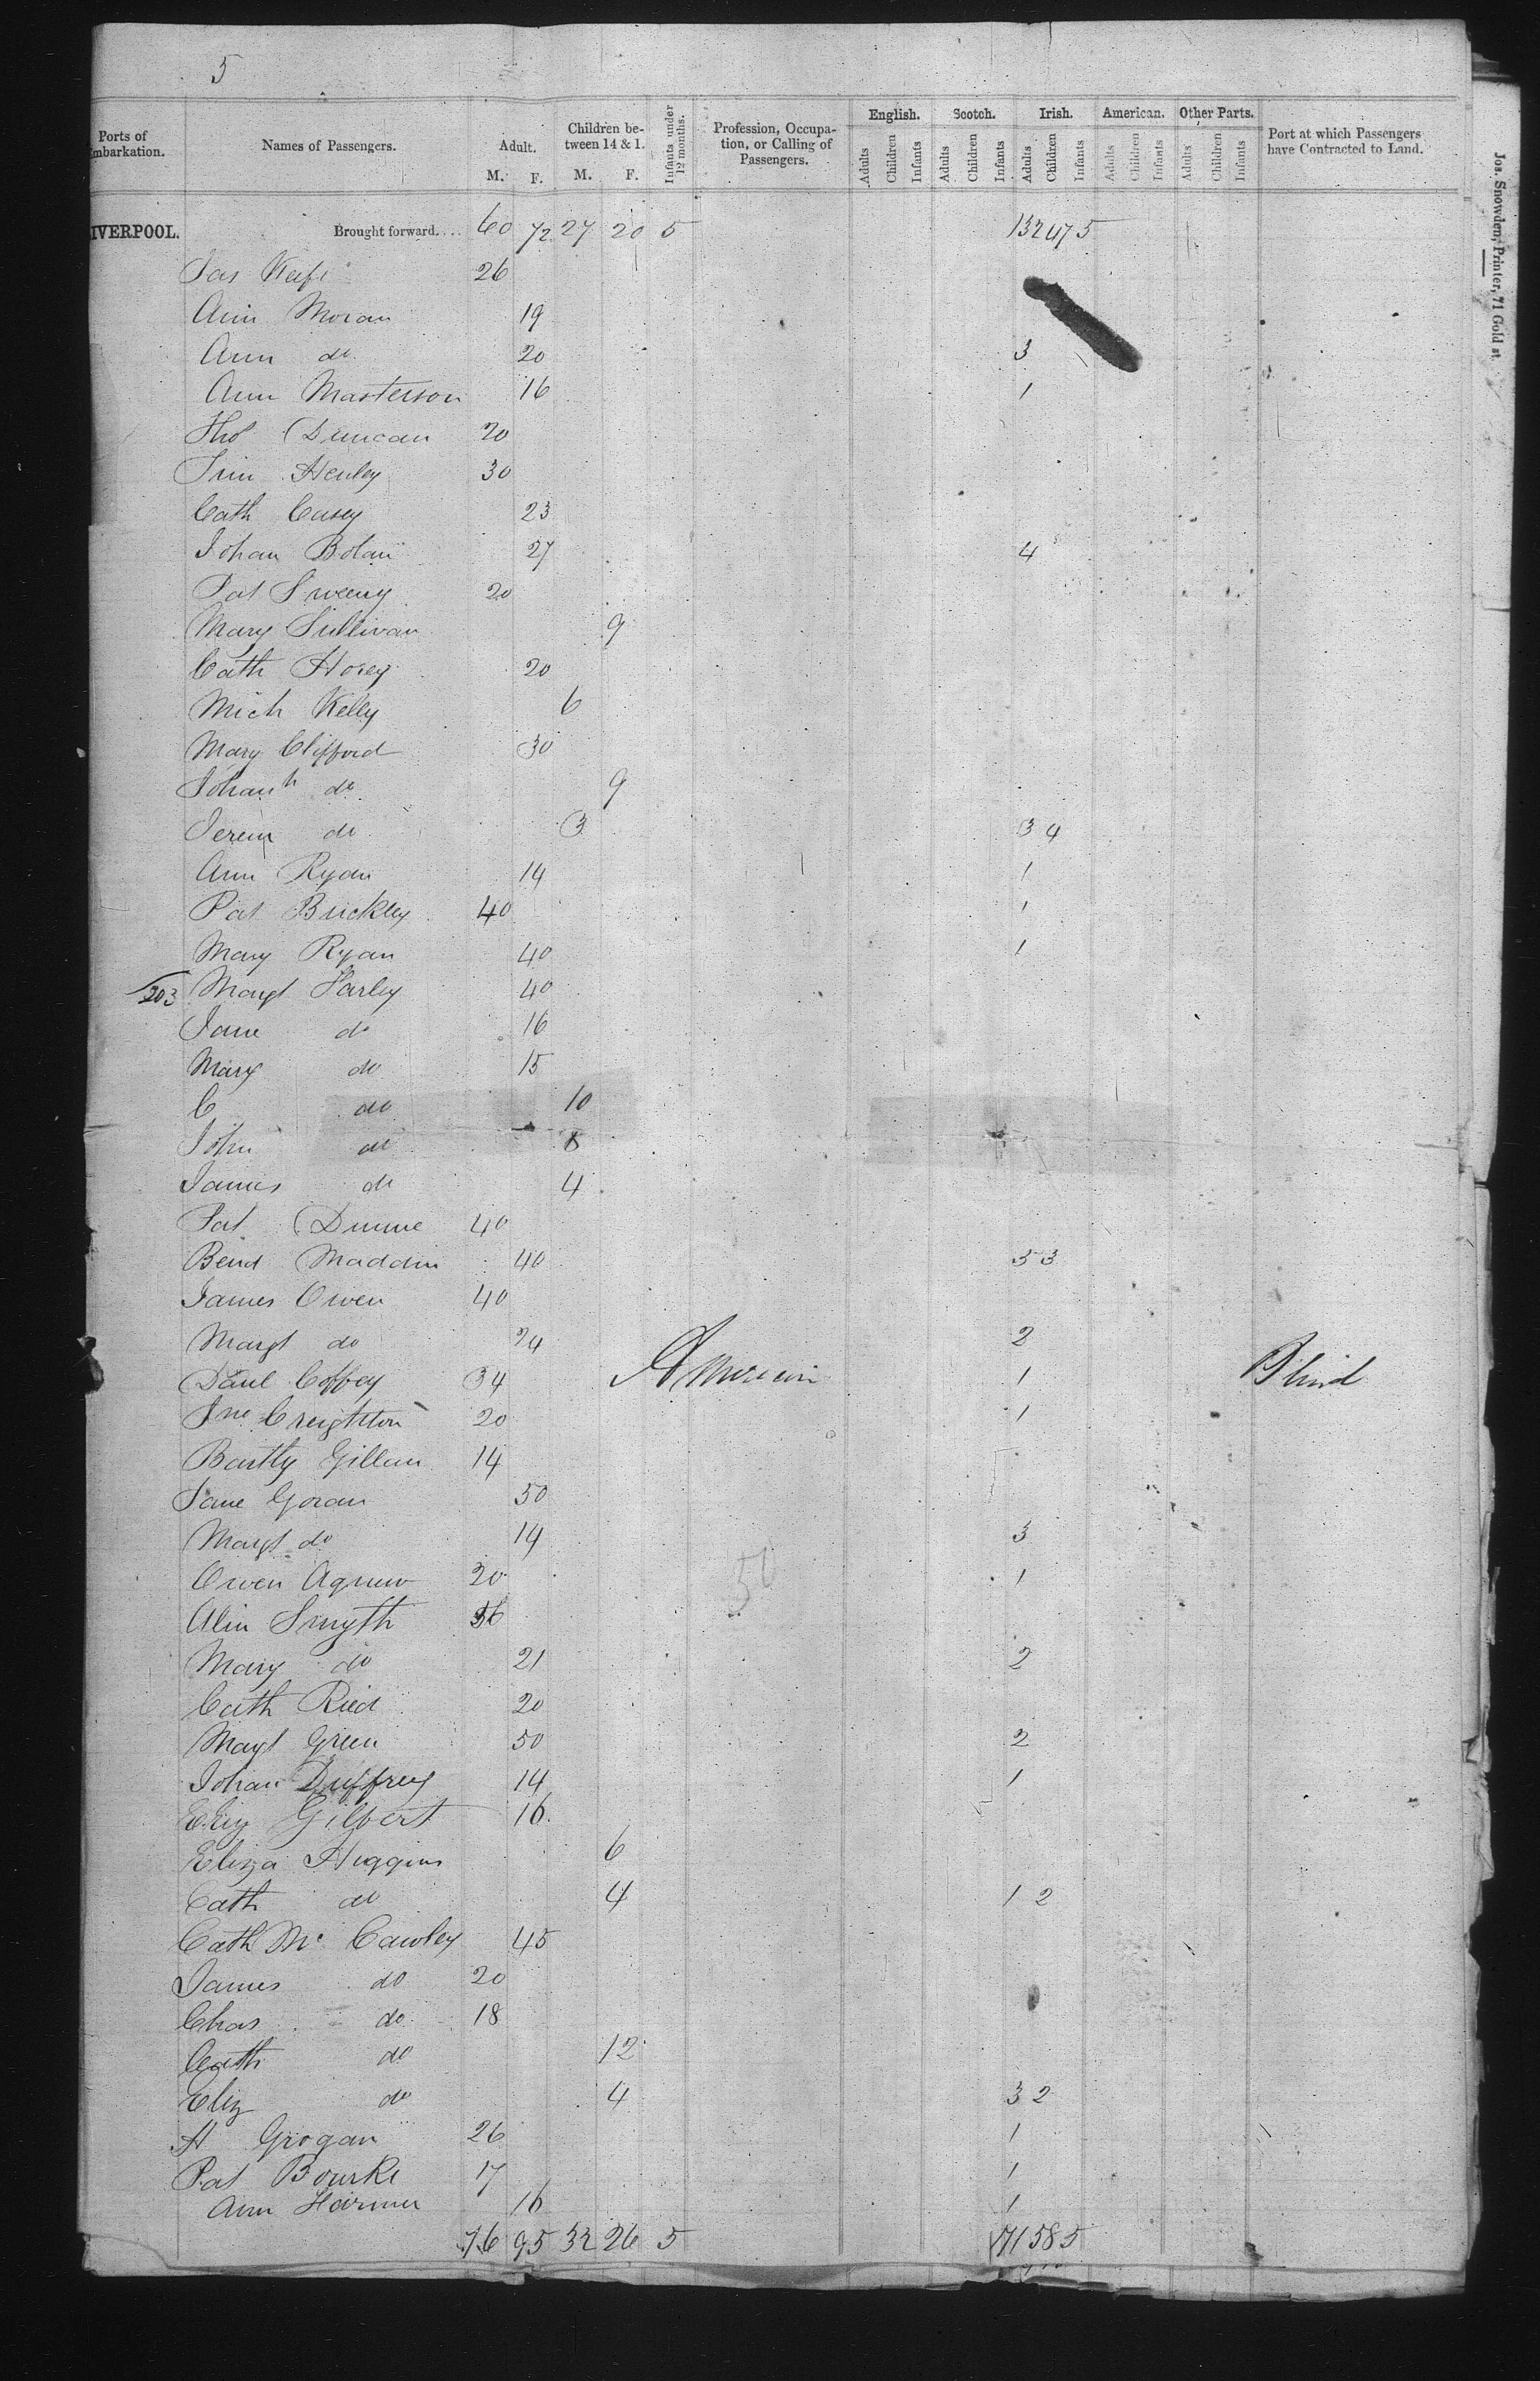 5
Ports of Embarkation. Names of Passengers. Adult. M. F. Children between 14 & 1. M. F. Infants under 12 months. Profession, Occupation, or Calling of Passengers. English. Adults Children Infants Scotch. Adults Children Infants Irish. Adults Children Infants American. Adults Children Infants Other Parts. Adults Children Infants Port at which Passengers have Contracted to Land.
IVERPOOL. Brought forward.... 60 72 27 20 5 132 47 5
Jas 26
Ann Moran 19
Ann do 20 3
Ann Masterson 16 1
Tho Duncan 20
Henley 30
Cath Casey 23
Johan Bolan 27 4
Pat Sweeny 20
Mary Sullivan 9
Cath Horey 20
Mich Kelly 6
Mary Clifford 30
Johanh do 9
Jerem do 3 3 4
Ann Ryan 14 1
Pat Buckley 40 1
Mary Ryan 40 1
203 Margt Harley 40
Jane do 16
Mary do 15
C do 10
John do 8
James do 4
Pat Dunne 40
Maddin 40 5 3
James Owen 40
Margt do 24 2
Danl Coffey 34 American 1 Blind
Jno Creighton 20 1
Bartly Gillan 14
Jane Goran 50
Margt do 14 3
Owen Agnew 20 1
50
Smyth
Mary do 21 2
Cath Ried 20
Margt Green 50 2
Johan Duffrey 14 1
Eliz Gilbert 16
Eliza Higgins 6
Cath do 4 1 2
Cath Mc Cawley 45
James do 20
Chas do 18
Cath do 12
Eliz do 4 3 2
H Grogan 26 1
Pat Bourke 17 1
Ann 16 1
76 95 32 26 5 171 58 5
Jos. Snowden, Printer, 71 Gold st.